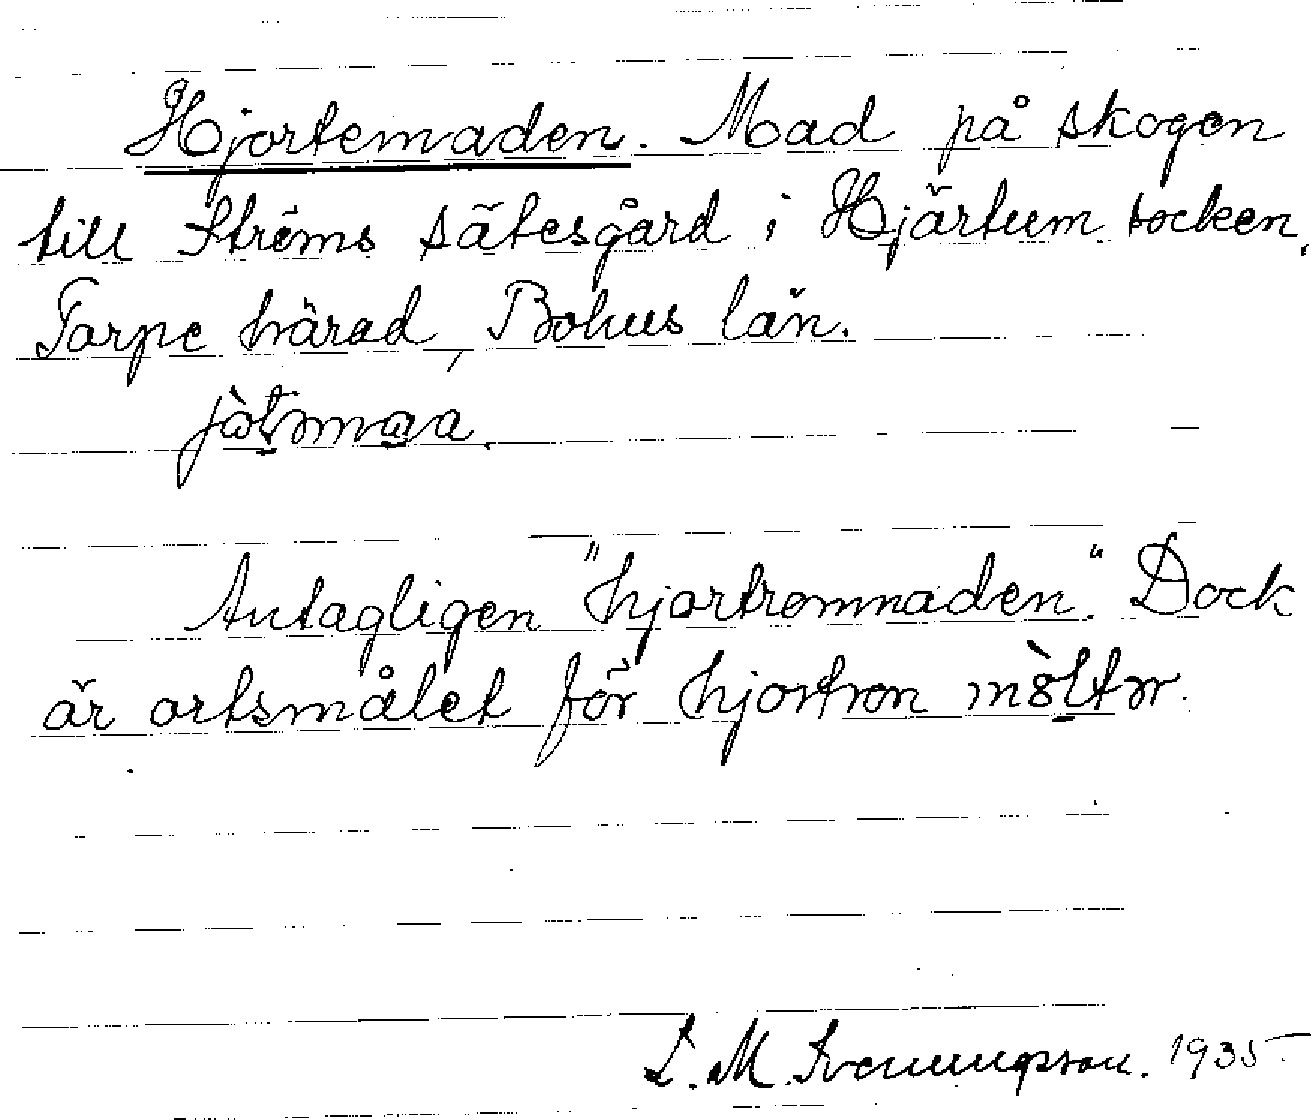 Hjortemaden. Mad på skogen
till Ströms sätesgård i Hjärtum socken,
Torpe härad, Bohus län.
Antagligen "hjortronmaden". Dock
är ortsmålet för hjortron mòltər.
L. M. Svenungsson. 1935.